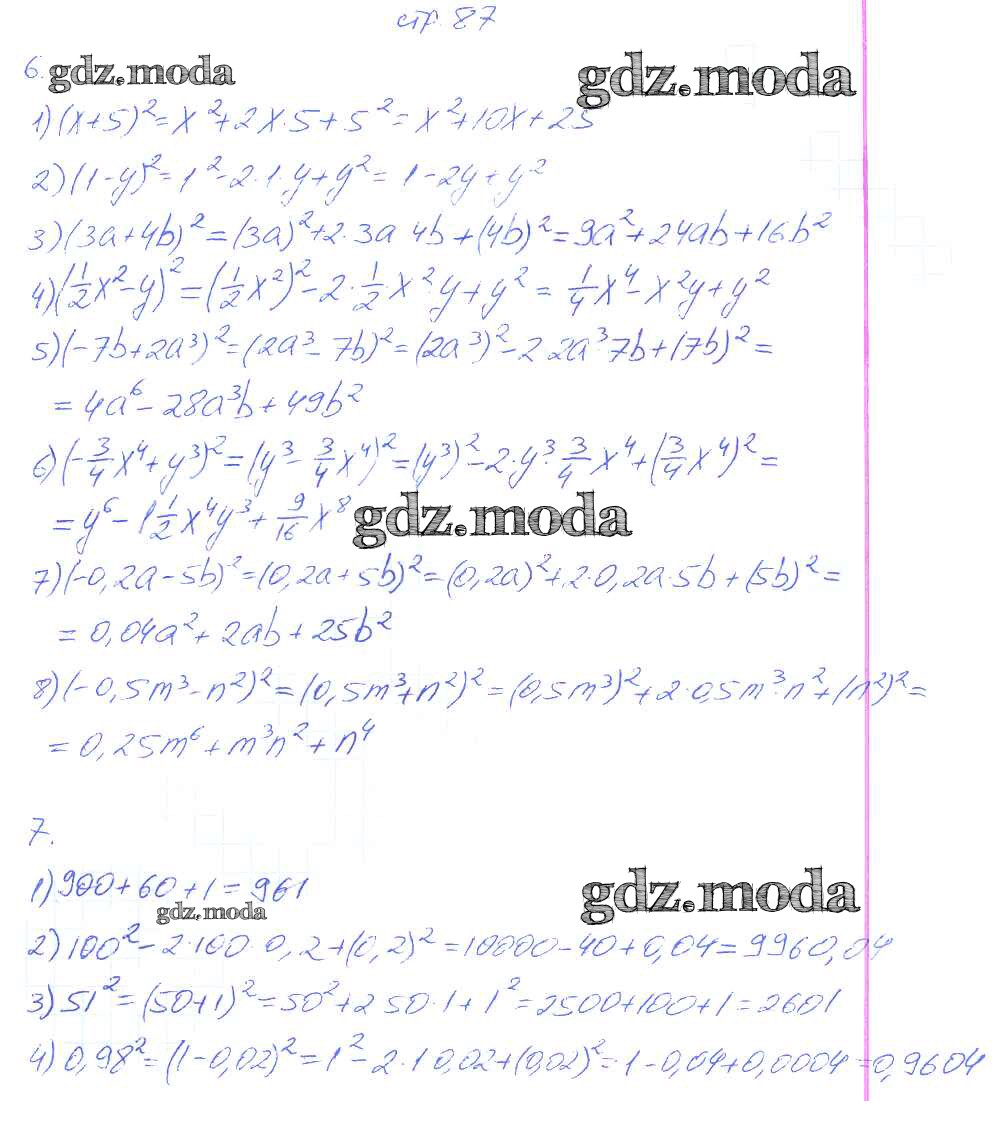 стр. 87
6. gdz.moda gdz.moda
1) (x+5)²=x²+2x·5+5²=x²+10x+25
2) (1-y)²=1²-2·1·y+y²=1-2y+y²
3) (3a+4b)²=(3a)²+2·3a 4b+(4b)²=9a²+24ab+16b²
4) (1/2x²-y)²=(1/2x²)²-2·1/2x²·y+y²=1/4x⁴-x²y+y²
5) (-7b+2a³)²=(2a³-7b)²=(2a³)²-2·2a³·7b+(7b)²=
=4a⁶-28a³b+49b²
6) (-3/4x⁴+y³)²=(y³-3/4x⁴)²=(y³)²-2·y³·3/4x⁴+(3/4x⁴)²=
=y⁶-1 1/2x⁴y³+9/16x⁸ gdz.moda
7) (-0,2a-5b)²=(0,2a+5b)²=(0,2a)²+2·0,2a·5b+(5b)²=
=0,04a²+2ab+25b²
8) (-0,5m³-n²)²=(0,5m³+n²)²=(0,5m³)²+2·0,5m³·n²+(n²)²=
=0,25m⁶+m³n²+n⁴
7.
1) 900+60+1=961 gdz.moda
gdz.moda
2) 100²-2·100·0,2+(0,2)²=10000-40+0,04=9960,04
3) 51²=(50+1)²=50²+2 50·1+1²=2500+100+1=2601
4) 0,98²=(1-0,02)²=1²-2·1 0,02+(0,02)²=1-0,04+0,0004=0,9604